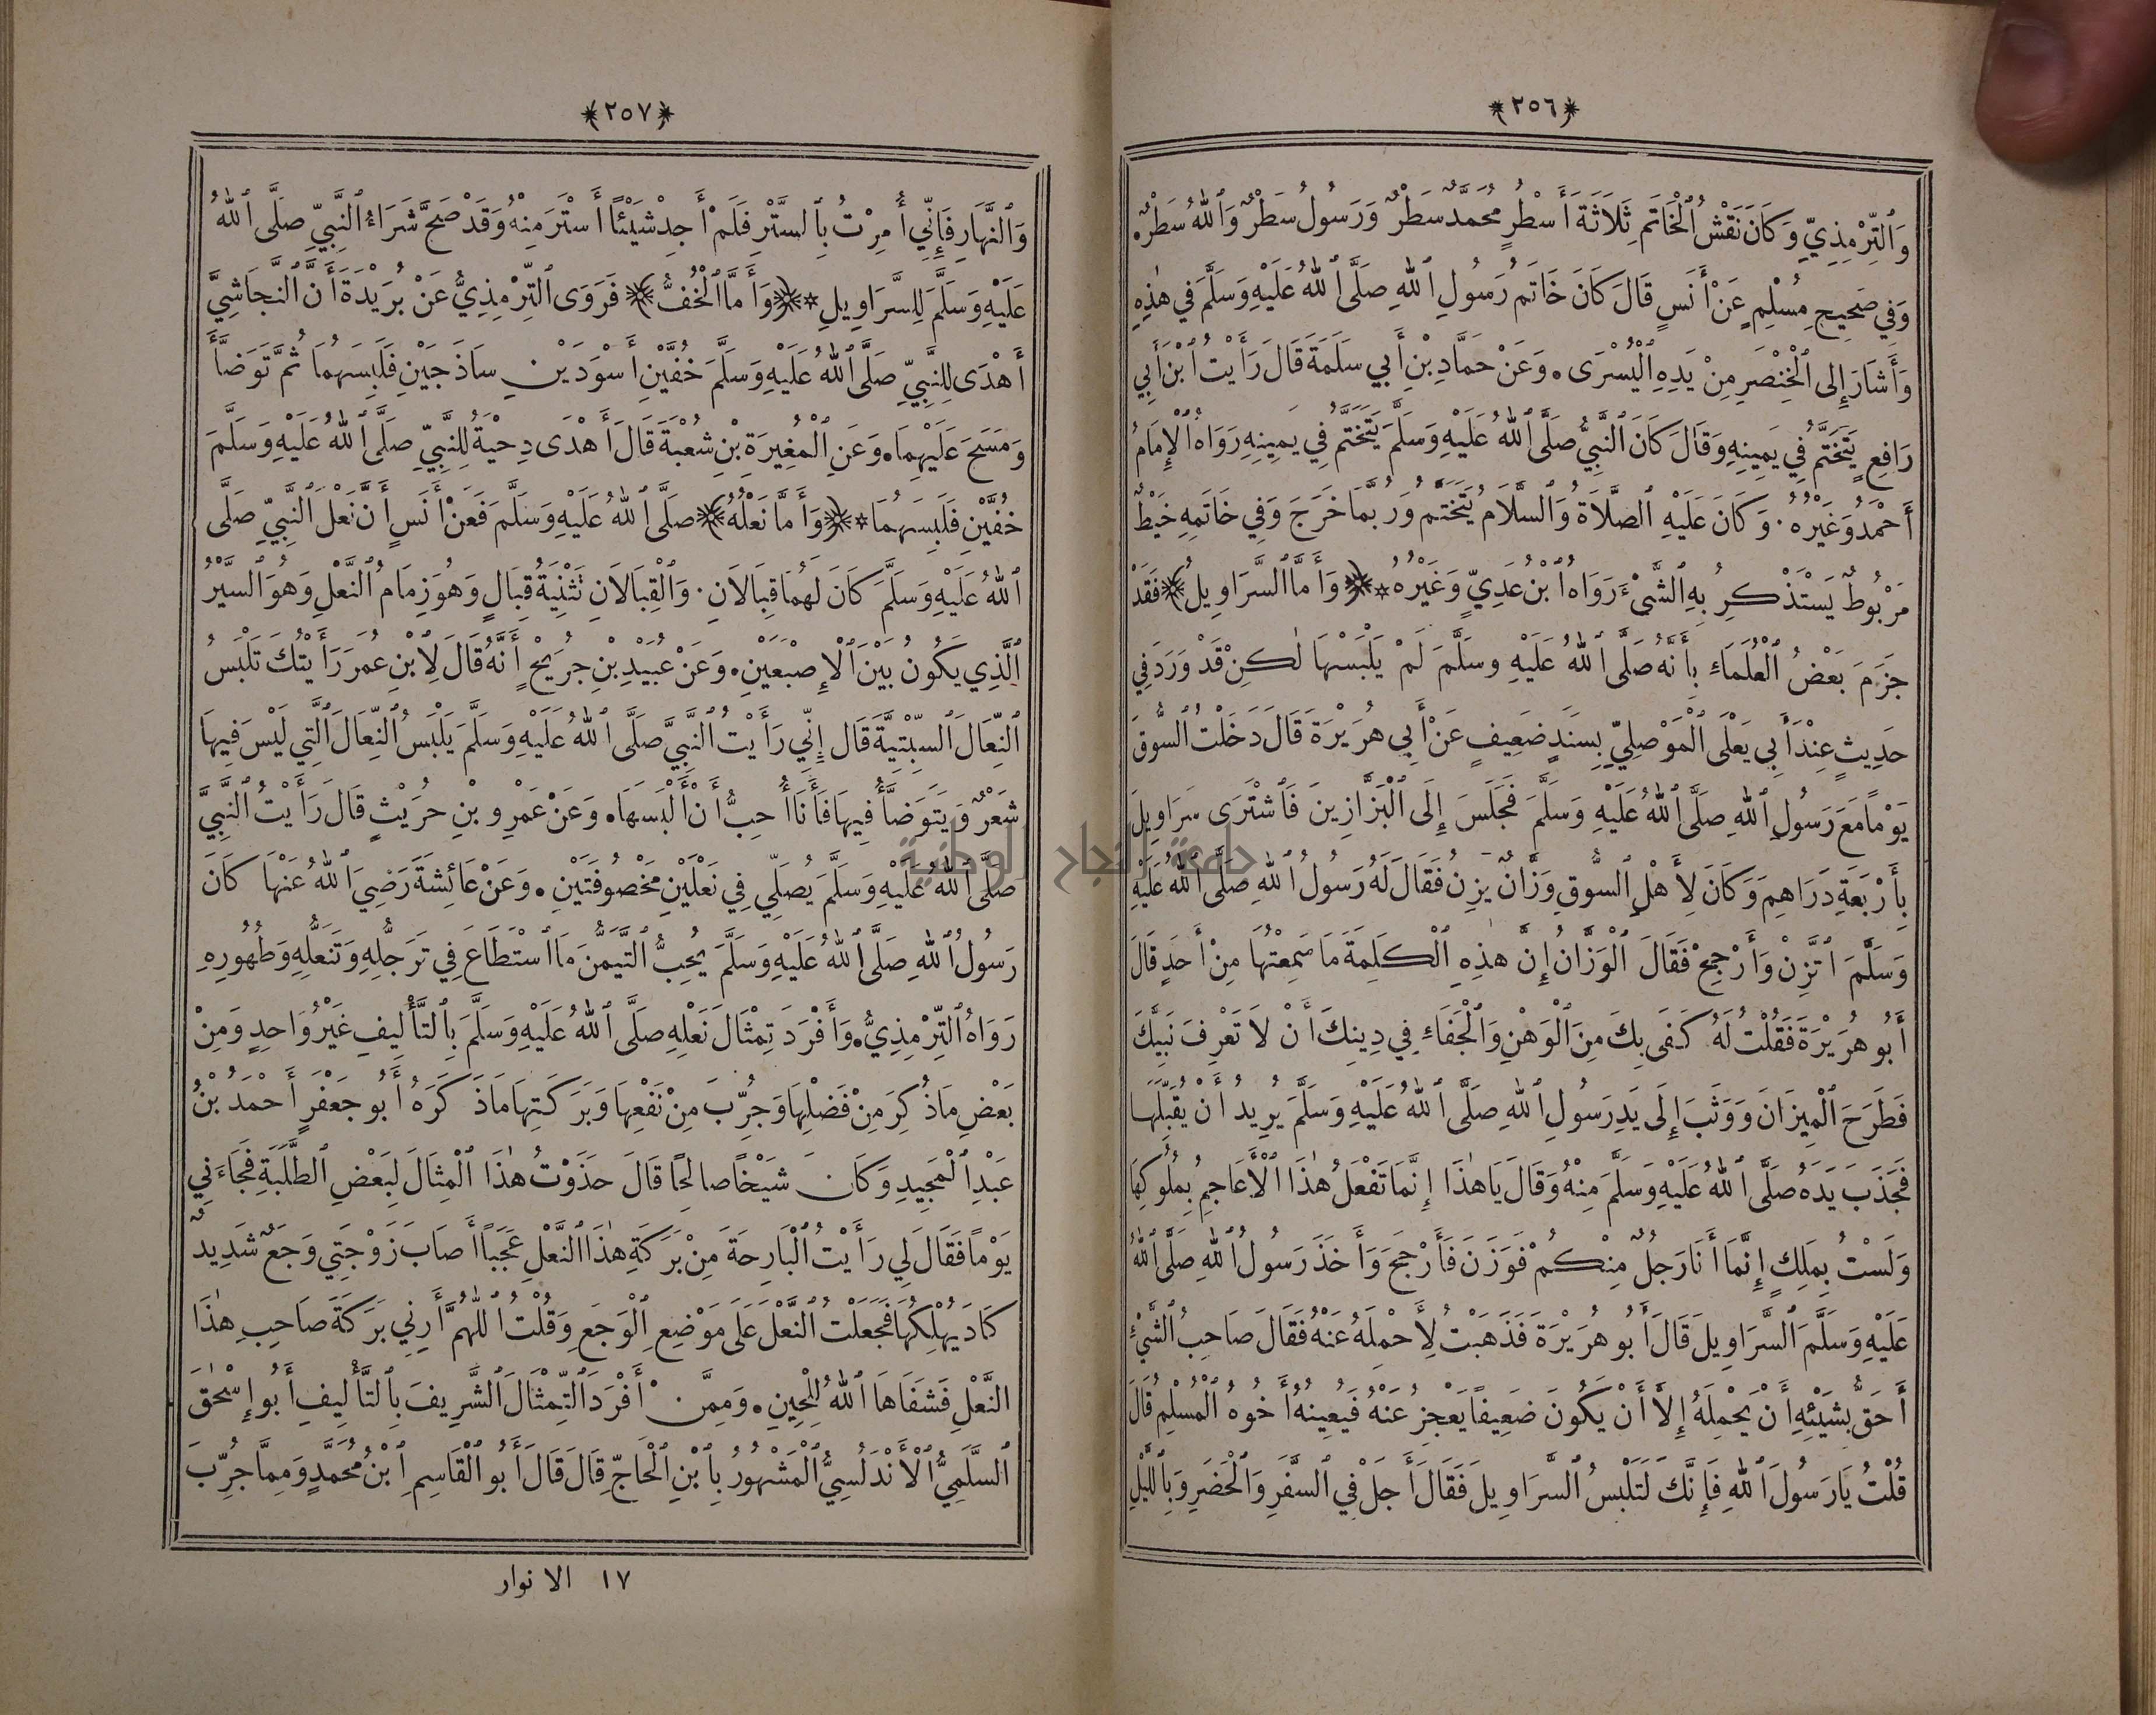 ﴿٢٥٦﴾
وَٱلتِّرْمِذِيِّ وَكَانَ نَقْشُ ٱلْخَاتَمِ ثَلَاثَةَ أَسْطُرٍ مُحَمَّدٌ سَطْرٌ وَرَسُولُ سَطْرٌ وَٱللهُ سَطْرٌ.
وَفِي صَحِيحِ مُسْلِمٍ عَنْ أَنَسٍ قَالَ كَانَ خَاتَمُ رَسُولِ ٱللهِ صَلَّى ٱللهُ عَلَيْهِ وَسَلَّمَ فِي هٰذِهِ
وَأَشَارَ إِلَى ٱلْخِنْصَرِ مِنْ يَدِهِ ٱلْيُسْرَى. وَعَنْ حَمَّادِ بْنِ أَبِي سَلَمَةَ قَالَ رَأَيْتُ ٱبْنَ أَبِي
رَافِعٍ يَتَخَتَّمُ فِي يَمِينِهِ وَقَالَ كَانَ ٱلنَّبِيُّ صَلَّى ٱللهُ عَلَيْهِ وَسَلَّمَ يَتَخَتَّمُ فِي يَمِينِهِ رَوَاهُ ٱلْإِمَامُ
أَحْمَدُ وَغَيْرُهُ. وَكَانَ عَلَيْهِ ٱلصَّلَاةُ وَٱلسَّلَامُ يَتَخَتَّمُ وَرُبَّمَا خَرَجَ وَفِي خَاتَمِهِ خَيْطٌ
مَرْبُوطٌ يَسْتَذْكِرُ بِهِ ٱلشَّيْءَ رَوَاهُ ٱبْنُ عَدِيٍّ وَغَيْرُهُ * ﴿وَأَمَّا ٱلسَّرَاوِيلُ﴾ فَقَدْ
جَزَمَ بَعْضُ ٱلْعُلَمَاءِ بِأَنَّهُ صَلَّى ٱللهُ عَلَيْهِ وَسَلَّمَ لَمْ يَلْبَسْهَا لٰكِنْ قَدْ وَرَدَ فِي
حَدِيثٍ عِنْدَ أَبِي يَعْلَى ٱلْمَوْصِلِيِّ بِسَنَدٍ ضَعِيفٍ عَنْ أَبِي هُرَيْرَةَ قَالَ دَخَلْتُ ٱلسُّوقَ
يَوْمًا مَعَ رَسُولِ ٱللهِ صَلَّى ٱللهُ عَلَيْهِ وَسَلَّمَ فَجَلَسَ إِلَى ٱلْبَزَّازِينَ فَٱشْتَرَى سَرَاوِيلَ
بِأَرْبَعَةِ دَرَاهِمَ وَكَانَ لِأَهْلِ ٱلسُّوقِ وَزَّانٌ يَزِنُ فَقَالَ لَهُ رَسُولُ ٱللهِ صَلَّى ٱللهُ عَلَيْهِ
وَسَلَّمَ ٱتَّزِنْ وَأَرْجِحْ فَقَالَ ٱلْوَزَّانُ إِنَّ هٰذِهِ ٱلْكَلِمَةَ مَا سَمِعْتُهَا مِنْ أَحَدٍ قَالَ
أَبُو هُرَيْرَةَ فَقُلْتُ لَهُ كَفَى بِكَ مِنَ ٱلْوَهْنِ وَٱلْجَفَاءِ فِي دِينِكَ أَنْ لَا تَعْرِفَ نَبِيَّكَ
فَطَرَحَ ٱلْمِيزَانَ وَوَثَبَ إِلَى يَدِ رَسُولِ ٱللهِ صَلَّى ٱللهُ عَلَيْهِ وَسَلَّمَ يُرِيدُ أَنْ يُقَبِّلَهَا
فَجَذَبَ يَدَهُ صَلَّى ٱللهُ عَلَيْهِ وَسَلَّمَ مِنْهُ وَقَالَ يَا هٰذَا إِنَّمَا تَفْعَلُ هٰذَا ٱلْأَعَاجِمُ بِمُلُوكِهَا
وَلَسْتُ بِمَلِكٍ إِنَّمَا أَنَا رَجُلٌ مِنْكُمْ فَوَزَنَ فَأَرْجَحَ وَأَخَذَ رَسُولُ ٱللهِ صَلَّى ٱللهُ
عَلَيْهِ وَسَلَّمَ ٱلسَّرَاوِيلَ قَالَ أَبُو هُرَيْرَةَ فَذَهَبْتُ لِأَحْمِلَهُ عَنْهُ فَقَالَ صَاحِبُ ٱلشَّيْءِ
أَحَقُّ بِشَيْئِهِ أَنْ يَحْمِلَهُ إِلَّا أَنْ يَكُونَ ضَعِيفًا يَعْجِزُ عَنْهُ فَيُعِينُهُ أَخُوهُ ٱلْمُسْلِمُ قَالَ
قُلْتُ يَا رَسُولَ ٱللهِ فَإِنَّكَ لَتَلْبَسُ ٱلسَّرَاوِيلَ فَقَالَ أَجَلْ فِي ٱلسَّفَرِ وَٱلْحَضَرِ وَبِٱللَّيْلِ
﴿٢٥٧﴾
وَٱلنَّهَارِ فَإِنِّي أُمِرْتُ بِٱلسَّتْرِ فَلَمْ أَجِدْ شَيْئًا أَسْتَرَ مِنْهُ وَقَدْ صَحَّ شَرَاءُ ٱلنَّبِيِّ صَلَّى ٱللهُ
عَلَيْهِ وَسَلَّمَ لِلسَّرَاوِيلِ * ﴿وَأَمَّا ٱلْخُفُّ﴾ فَرَوَى ٱلتِّرْمِذِيُّ عَنْ بُرَيْدَةَ أَنَّ ٱلنَّجَاشِيَّ
أَهْدَى لِلنَّبِيِّ صَلَّى ٱللهُ عَلَيْهِ وَسَلَّمَ خُفَّيْنِ أَسْوَدَيْنِ سَاذَجَيْنِ فَلَبِسَهُمَا ثُمَّ تَوَضَّأَ
وَمَسَحَ عَلَيْهِمَا. وَعَنِ ٱلْمُغِيرَةِ بْنِ شُعْبَةَ قَالَ أَهْدَى دِحْيَةُ لِلنَّبِيِّ صَلَّى ٱللهُ عَلَيْهِ وَسَلَّمَ
خُفَّيْنِ فَلَبِسَهُمَا * ﴿وَأَمَّا نَعْلُهُ﴾ صَلَّى ٱللهُ عَلَيْهِ وَسَلَّمَ فَعَنْ أَنَسٍ أَنَّ نَعْلَ ٱلنَّبِيِّ صَلَّى
ٱللهُ عَلَيْهِ وَسَلَّمَ كَانَ لَهُمَا قِبَالَانِ. وَٱلْقِبَالَانِ تَثْنِيَةُ قِبَالٍ وَهُوَ زِمَامُ ٱلنَّعْلِ وَهُوَ ٱلسَّيْرُ
ٱلَّذِي يَكُونُ بَيْنَ ٱلْإِصْبَعَيْنِ. وَعَنْ عُبَيْدِ بْنِ جُرَيْجٍ أَنَّهُ قَالَ لِٱبْنِ عُمَرَ رَأَيْتُكَ تَلْبَسُ
ٱلنِّعَالَ ٱلسِّبْتِيَّةَ قَالَ إِنِّي رَأَيْتُ ٱلنَّبِيَّ صَلَّى ٱللهُ عَلَيْهِ وَسَلَّمَ يَلْبَسُ ٱلنِّعَالَ ٱلَّتِي لَيْسَ فِيهَا
شَعْرٌ وَيَتَوَضَّأُ فِيهَا فَأَنَا أُحِبُّ أَنْ أَلْبَسَهَا. وَعَنْ عَمْرِو بْنِ حُرَيْثٍ قَالَ رَأَيْتُ ٱلنَّبِيَّ
صَلَّى ٱللهُ عَلَيْهِ وَسَلَّمَ يُصَلِّي فِي نَعْلَيْنِ مَخْصُوفَتَيْنِ. وَعَنْ عَائِشَةَ رَضِيَ ٱللهُ عَنْهَا كَانَ
رَسُولُ ٱللهِ صَلَّى ٱللهُ عَلَيْهِ وَسَلَّمَ يُحِبُّ ٱلتَّيَمُّنَ مَا ٱسْتَطَاعَ فِي تَرَجُّلِهِ وَتَنَعُّلِهِ وَطُهُورِهِ
رَوَاهُ ٱلتِّرْمِذِيُّ. وَأَفْرَدَ تِمْثَالَ نَعْلِهِ صَلَّى ٱللهُ عَلَيْهِ وَسَلَّمَ بِٱلتَّأْلِيفِ غَيْرُ وَاحِدٍ وَمِنْ
بَعْضِ مَا ذُكِرَ مِنْ فَضْلِهَا وَجُرِّبَ مِنْ نَفْعِهَا وَبَرَكَتِهَا مَا ذَكَرَهُ أَبُو جَعْفَرٍ أَحْمَدُ بْنُ
عَبْدِ ٱلْمَجِيدِ وَكَانَ شَيْخًا صَالِحًا قَالَ حَذَوْتُ هٰذَا ٱلْمِثَالَ لِبَعْضِ ٱلطَّلَبَةِ فَجَاءَنِي
يَوْمًا فَقَالَ لِي رَأَيْتُ ٱلْبَارِحَةَ مِنْ بَرَكَةِ هٰذَا ٱلنَّعْلِ عَجَبًا أَصَابَ زَوْجَتِي وَجَعٌ شَدِيدٌ
كَادَ يُهْلِكُهَا فَجَعَلْتُ ٱلنَّعْلَ عَلَى مَوْضِعِ ٱلْوَجَعِ وَقُلْتُ ٱللّٰهُمَّ أَرِنِي بَرَكَةَ صَاحِبِ هٰذَا
ٱلنَّعْلِ فَشَفَاهَا ٱللهُ لِلْحِينِ. وَمِمَّنْ أَفْرَدَ ٱلتِّمْثَالَ ٱلشَّرِيفَ بِٱلتَّأْلِيفِ أَبُو إِسْحٰقَ
ٱلسُّلَمِيُّ ٱلْأَنْدَلُسِيُّ ٱلْمَشْهُورُ بِٱبْنِ ٱلْحَاجِّ قَالَ قَالَ أَبُو ٱلْقَاسِمِ ٱبْنُ مُحَمَّدٍ وَمِمَّا جُرِّبَ
١٧ الانوار
جامعة النجاح الوطنية